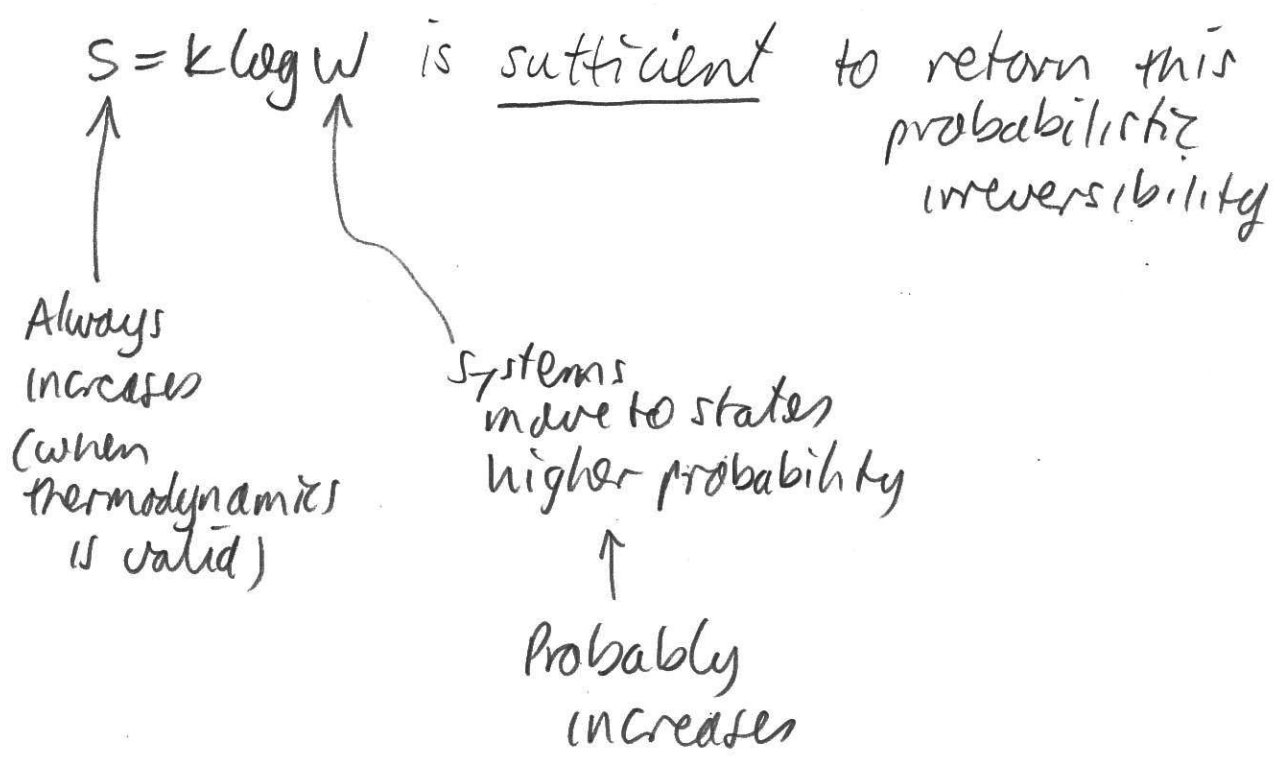 S = k log W is sufficient to return this
probabilistic
irreversibility
Always
increases
(when
thermodynamics
is valid)
Systems
move to states
higher probability
Probably
increases